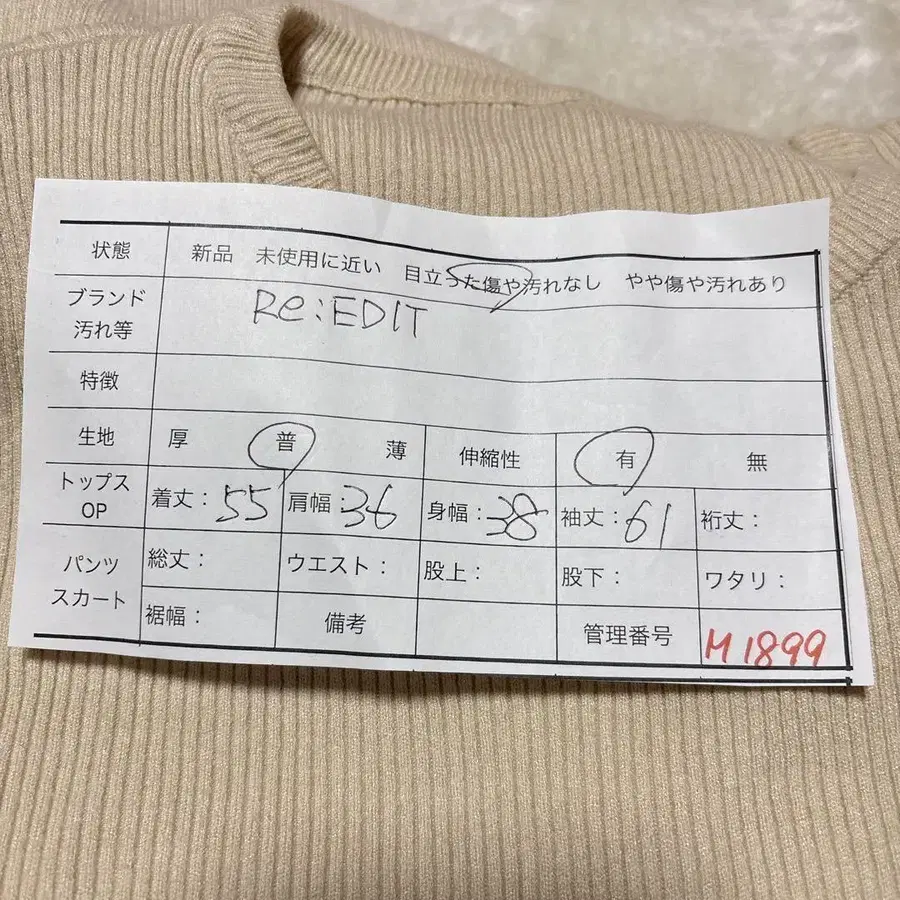 状態 新品 未使用に近い 目立った傷や汚れなし やや傷や汚れあり
ブランド
汚れ等 Re:EDIT
特徴
生地 厚 普 薄 伸縮性 有 無
トップス
OP 着丈:55 肩幅:36 身幅:38 袖丈:61 裄丈:
パンツ
スカート 総丈: ウエスト: 股上: 股下: ワタリ:
裾幅: 備考 管理番号 M1899